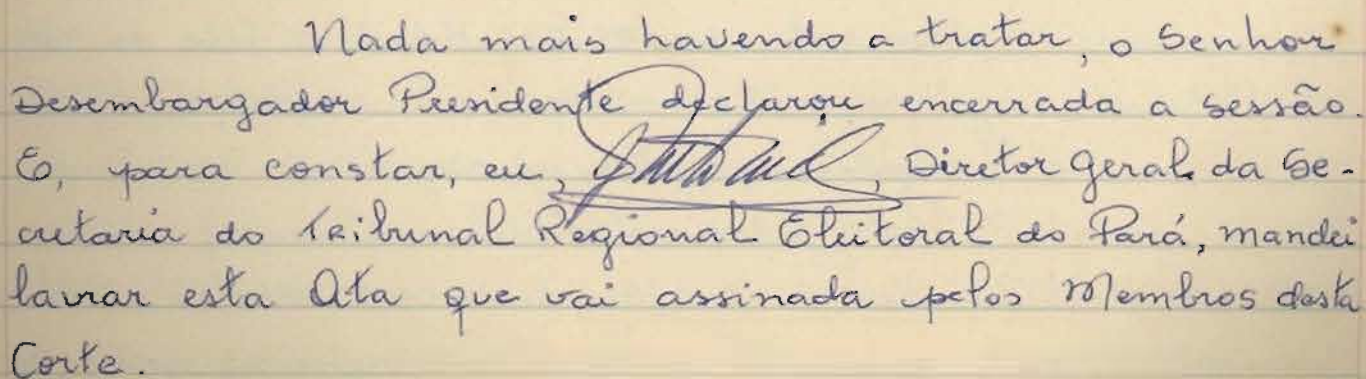 Nada mais havendo a tratar, o Senhor
Desembargador Presidente declarou encerrada a sessão.
E, para constar, eu, , Diretor Geral da Se-
cretaria do Tribunal Regional Eleitoral do Pará, mandei
lavrar esta Ata que vai assinada pelos Membros desta
Corte.